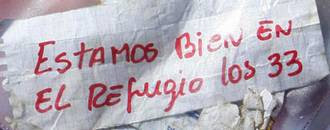 ESTAMOS BIEN EN
EL REfugio los 33